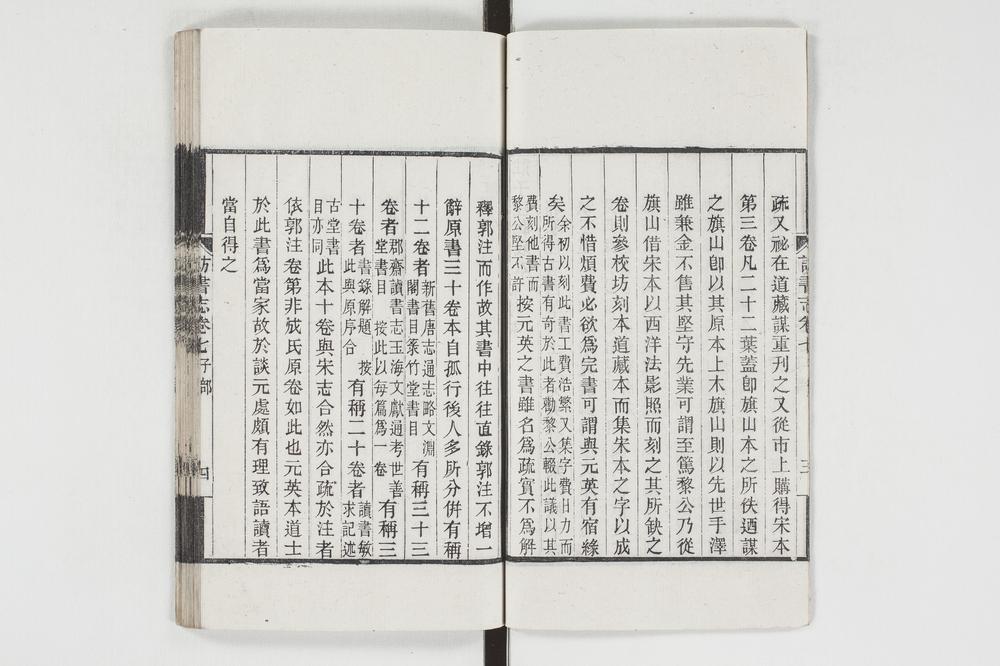 疏又祕在道藏謀重刊之又從市上購得宋本
第三卷凡二十二葉蓋卽旗山本之所佚迺謀
之旗山卽以其原本上木旗山則以先世手澤
雖兼金不售其堅守先業可謂至篤黎公乃從
旗山借宋本以西洋法影照而刻之其所缺之
卷則參校坊刻本道藏本而集宋本之字以成
之不惜煩費必欲爲完書可謂與元英有宿緣
矣余初以刻此書工費浩繁又集字費日力而
所得古書有奇於此者勸黎公輟此議以其
費刻他書而
黎公堅不許按元英之書雖名爲疏實不爲解
釋郭注而作故其書中往往直錄郭注不增一
辭原書三十卷本自孤行後人多所分倂有稱
十二卷者新舊唐志通志略文淵
閣書目菉竹堂書目有稱三十三
卷者郡齋讀書志玉海文獻通考世善
堂書目 按此以每篇爲一卷有稱三
十卷者書錄解題 按
此與原序合有稱二十卷者讀書敏
求記述
古堂書
目亦同此本十卷與宋志合然亦合疏於注者
依郭注卷第非成氏原卷如此也元英本道士
於此書爲當家故於談元處頗有理致語讀者
當自得之
訪書志卷七 子部
四